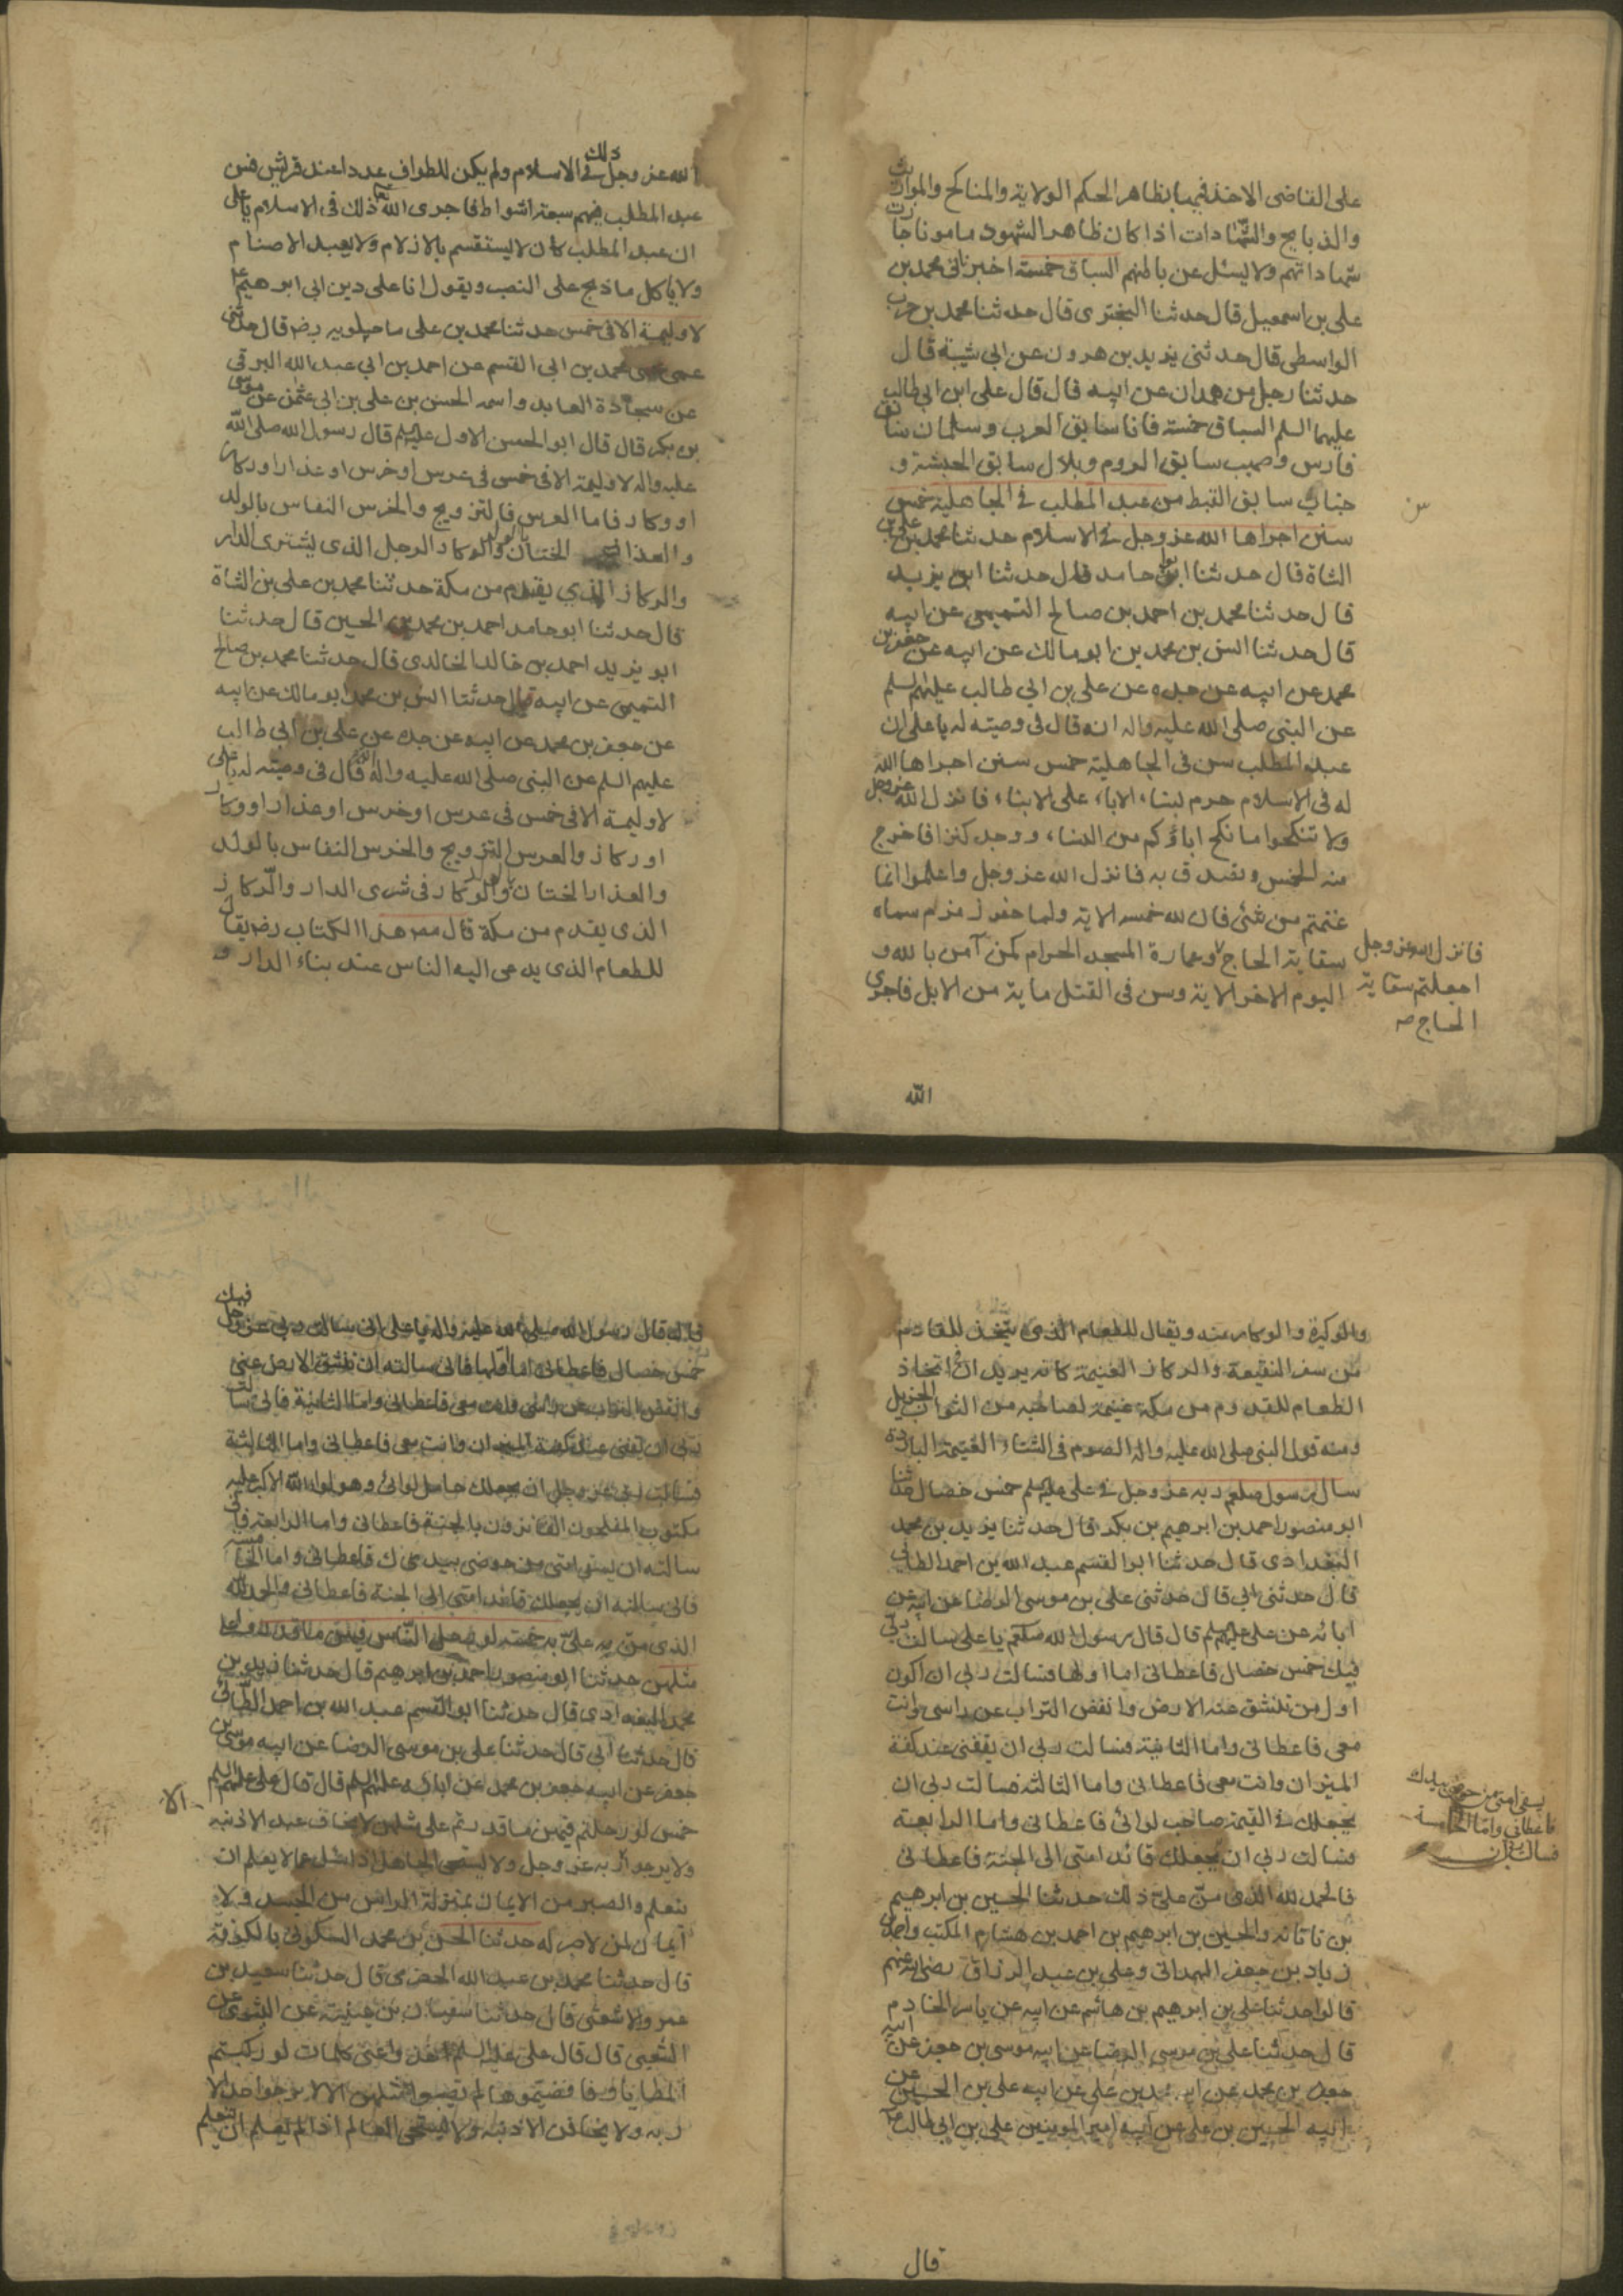 على القاضى الاخذ فيها بظاهر الحكم الولاية والمناكح والمواريث
والذبايح والشهادات اذا كان ظاهر الشهود مامونا جازت
شهاداتهم ولا يسئل عن باطنهم السباق خمسة اخبرنى محمد بن
على بن اسمعيل قال حدثنا البخترى قال حدثنا محمد بن حرب
الواسطى قال حدثنى يزيد بن هرون عن ابي شيبة قال
حدثنا رجل من همدان عن ابيه قال قال على ابن ابي طالب
عليهما السلم السباق خمسة فانا سابق العرب وسلمان سابق
فارس وصهيب سابق الروم وبلال سابق الحبشة و
خباب سابق القبط من عبد المطلب في الجاهلية خمس
سنن اجراها الله عز وجل في الاسلام حدثنا محمد بن على بن
الشاة قال حدثنا ابو حامد قال حدثنا ابو يزيد
قال حدثنا محمد بن احمد بن صالح التميمى عن ابيه
قال حدثنا انس بن محمد بن ابو مالك عن ابيه عن جعفر بن
محمد عن ابيه عن جده عن على بن ابي طالب عليهم السلم
عن النبى صلى الله عليه واله انه قال فى وصيته له يا على ان
عبد المطلب سن فى الجاهلية خمس سنن اجراها الله
له فى الاسلام حرم نساء الاباء على الابناء فانزل الله عز وجل
ولا تنكحوا ما نكح اباؤكم من النساء ووجد كنزا فاخرج
منه الخمس وتصدق به فانزل الله عز وجل واعلموا انما
غنمتم من شئ فان لله خمسه الاية ولما حفر زمزم سماه
سقاية الحاج وعمارة المسجد الحرام كمن آمن بالله و
اليوم الاخر الاية وسن فى القتل ماية من الابل فاجرى
فانزل الله عز وجل
اجعلتم سقاية
الحاج صه
س
الله
الله عز وجل ذلك في الاسلام ولم يكن للطواف عدد عند قريش فسن
عبد المطلب فيهم سبعة اشواط فاجرى الله ذلك فى الاسلام يا على
ان عبد المطلب كان لا يستقسم بالازلام ولا يعبد الاصنام
ولا ياكل ما ذبح على النصب ويقول انا على دين ابى ابرهيم
لا وليمة الا فى خمس حدثنا محمد بن على ماجيلويه رضه قال حدثنى
عمى محمد بن ابى القسم عن احمد بن ابي عبد الله البرقى
عن سجادة العابد واسمه الحسن بن على بن ابي عثمن عن موسى
بن بكر قال قال ابو الحسن الاول عليه السلم قال رسول الله صلى الله
عليه واله لا وليمة الا فى خمس فى عرس او خرس او عذار او ركاز
او وكار فاما العرس فالتزويج والخرس النفاس بالولد
والعذار الختان والوكار الرجل الذى يشترى الدار
والركاز الذي يقدم من مكة حدثنا محمد بن على بن الشاة
قال حدثنا ابو حامد احمد بن محمد بن الحسين قال حدثنا
ابو يزيد احمد بن خالد الخالدى قال حدثنا محمد بن صالح
التميمى عن ابيه قال حدثنا انس بن محمد ابو مالك عن ابيه
عن جعفر بن محمد عن ابيه عن جده عن على بن ابى طالب
عليهم السلم عن النبى صلى الله عليه واله انه قال فى وصيته له يا على
لا وليمة الا فى خمس فى عرس او خرس او عذار او وكار
او ركاز والعرس التزويج والخرس النفاس بالولد
والعذار الختان والوكار فى شرى الدار والركاز
الذى يقدم من مكة قال مص هذا الكتاب رضه يقال
للطعام الذى يدعى اليه الناس عند بناء الدار و
والوكيرة والوكار منه ويقال للطعام الذى يتخذ للقادم
من سفر النقيعة والركاز الغنيمة كانه يريد ان اتخاذ
الطعام للقدوم من مكة غنيمة لصاحبه من الثواب الجزيل
ومنه قول النبى صلى الله عليه واله الصوم فى الشتاء الغنيمة الباردة
سال رسول صلعم ربه عز وجل في على عليه السلم خمس خصال حدثنا
ابو منصور احمد بن ابرهيم بن بكر قال حدثنا يزيد بن محمد
البغدادى قال حدثنا ابو القسم عبد الله بن احمد الطائى
قال حدثنى ابى قال حدثنى على بن موسى الرضا عن ابيه عن
ابائه عن على عليهم السلم قال قال رسول الله صلعم يا على سالت ربى
فيك خمس خصال فاعطانى اما اولها فسالت ربى ان اكون
اول من تنشق عنه الارض وانفض التراب عن راسى وانت
معى فاعطانى واما الثانية فسالت ربى ان يقفنى عند كفة
الميزان وانت معى فاعطانى واما الثالثة فسالت ربى ان
يجعلك في القيمة صاحب لوائى فاعطانى واما الرابعة
فسالت ربى ان يجعلك قائد امتى الى الجنة فاعطانى
فالحمد لله الذى من على ذلك حدثنا الحسين بن ابرهيم
بن ناتانه والحسين بن ابرهيم بن احمد بن هشام المكتب واحمد بن
زياد بن جعفر الهمدانى وعلى بن عبد الرزاق رضى الله عنهم
قالوا حدثنا على بن ابرهيم بن هاشم عن ابيه عن ياسر الخادم
قال حدثنا على بن موسى الرضا عن ابيه موسى بن جعفر عن ابيه
جعفر بن محمد عن ابيه محمد بن على عن ابيه على بن الحسين عن
ابيه الحسين بن على عن ابيه امير المومنين على بن ابى طالب
يسقى امتى من حوضى بيدك
فاعطانى واما الخامسة
فسالت ربى ان
قال
قال قال رسول الله صلى الله عليه واله يا على انى سالت ربى عز وجل فيك
خمس خصال فاعطانى اما اولها فانى سالته ان تنشق الارض عنى
وانفض التراب عن راسى وانت معى فاعطانى واما الثانية فانى سالت
ربى ان يقفنى عند كفة الميزان وانت معى فاعطانى واما الثالثة
فسالت ربى عز وجل ان يجعلك حامل لوائى وهو لواء الله الاكبر عليه
مكتوب المفلحون الفائزون بالجنة فاعطانى واما الرابعة فانى
سالته ان يسقى امتى من حوضى بيدك فاعطانى واما الخامسة
فانى سالته ان يجعلك قائد امتى الى الجنة فاعطانى والحمد لله
الذى من به على خمسه لو رحل الناس فيهن ما قدروا على
مثلهن حدثنا ابو منصور احمد بن ابرهيم قال حدثنا زيد بن
محمد البغدادى قال حدثنا ابو القسم عبد الله بن احمد الطائى
قال حدثنا ابى قال حدثنا على بن موسى الرضا عن ابيه موسى بن
جعفر عن ابيه جعفر بن محمد عن ابائه عليهم السلم قال قال على عليه السلم
خمس لو رحلتم فيهن ما قدرتم على مثلهن لا يخاف عبد الا ذنبه
ولا يرجو الا ربه عز وجل ولا يستحى الجاهل اذا سئل عما لا يعلم ان
يتعلم والصبر من الايمان بمنزلة الراس من الجسد ولا
ايمان لمن لا صبر له حدثنا الحسن بن محمد السكونى بالكوفة
قال حدثنا محمد بن عبد الله الحضرمى قال حدثنا سعيد بن
عمرو الاشعثى قال حدثنا سفيان بن عيينة عن السرى عن
الشعبى قال قال على عليه السلم خذوا عنى كلمات لو ركبتم
المطايا فانضيتموها لم تصيبوا مثلهن الا لا يرجو احد الا
ربه ولا يخافن الا ذنبه ولا يستحى العالم اذا لم يعلم ان يتعلم
الا